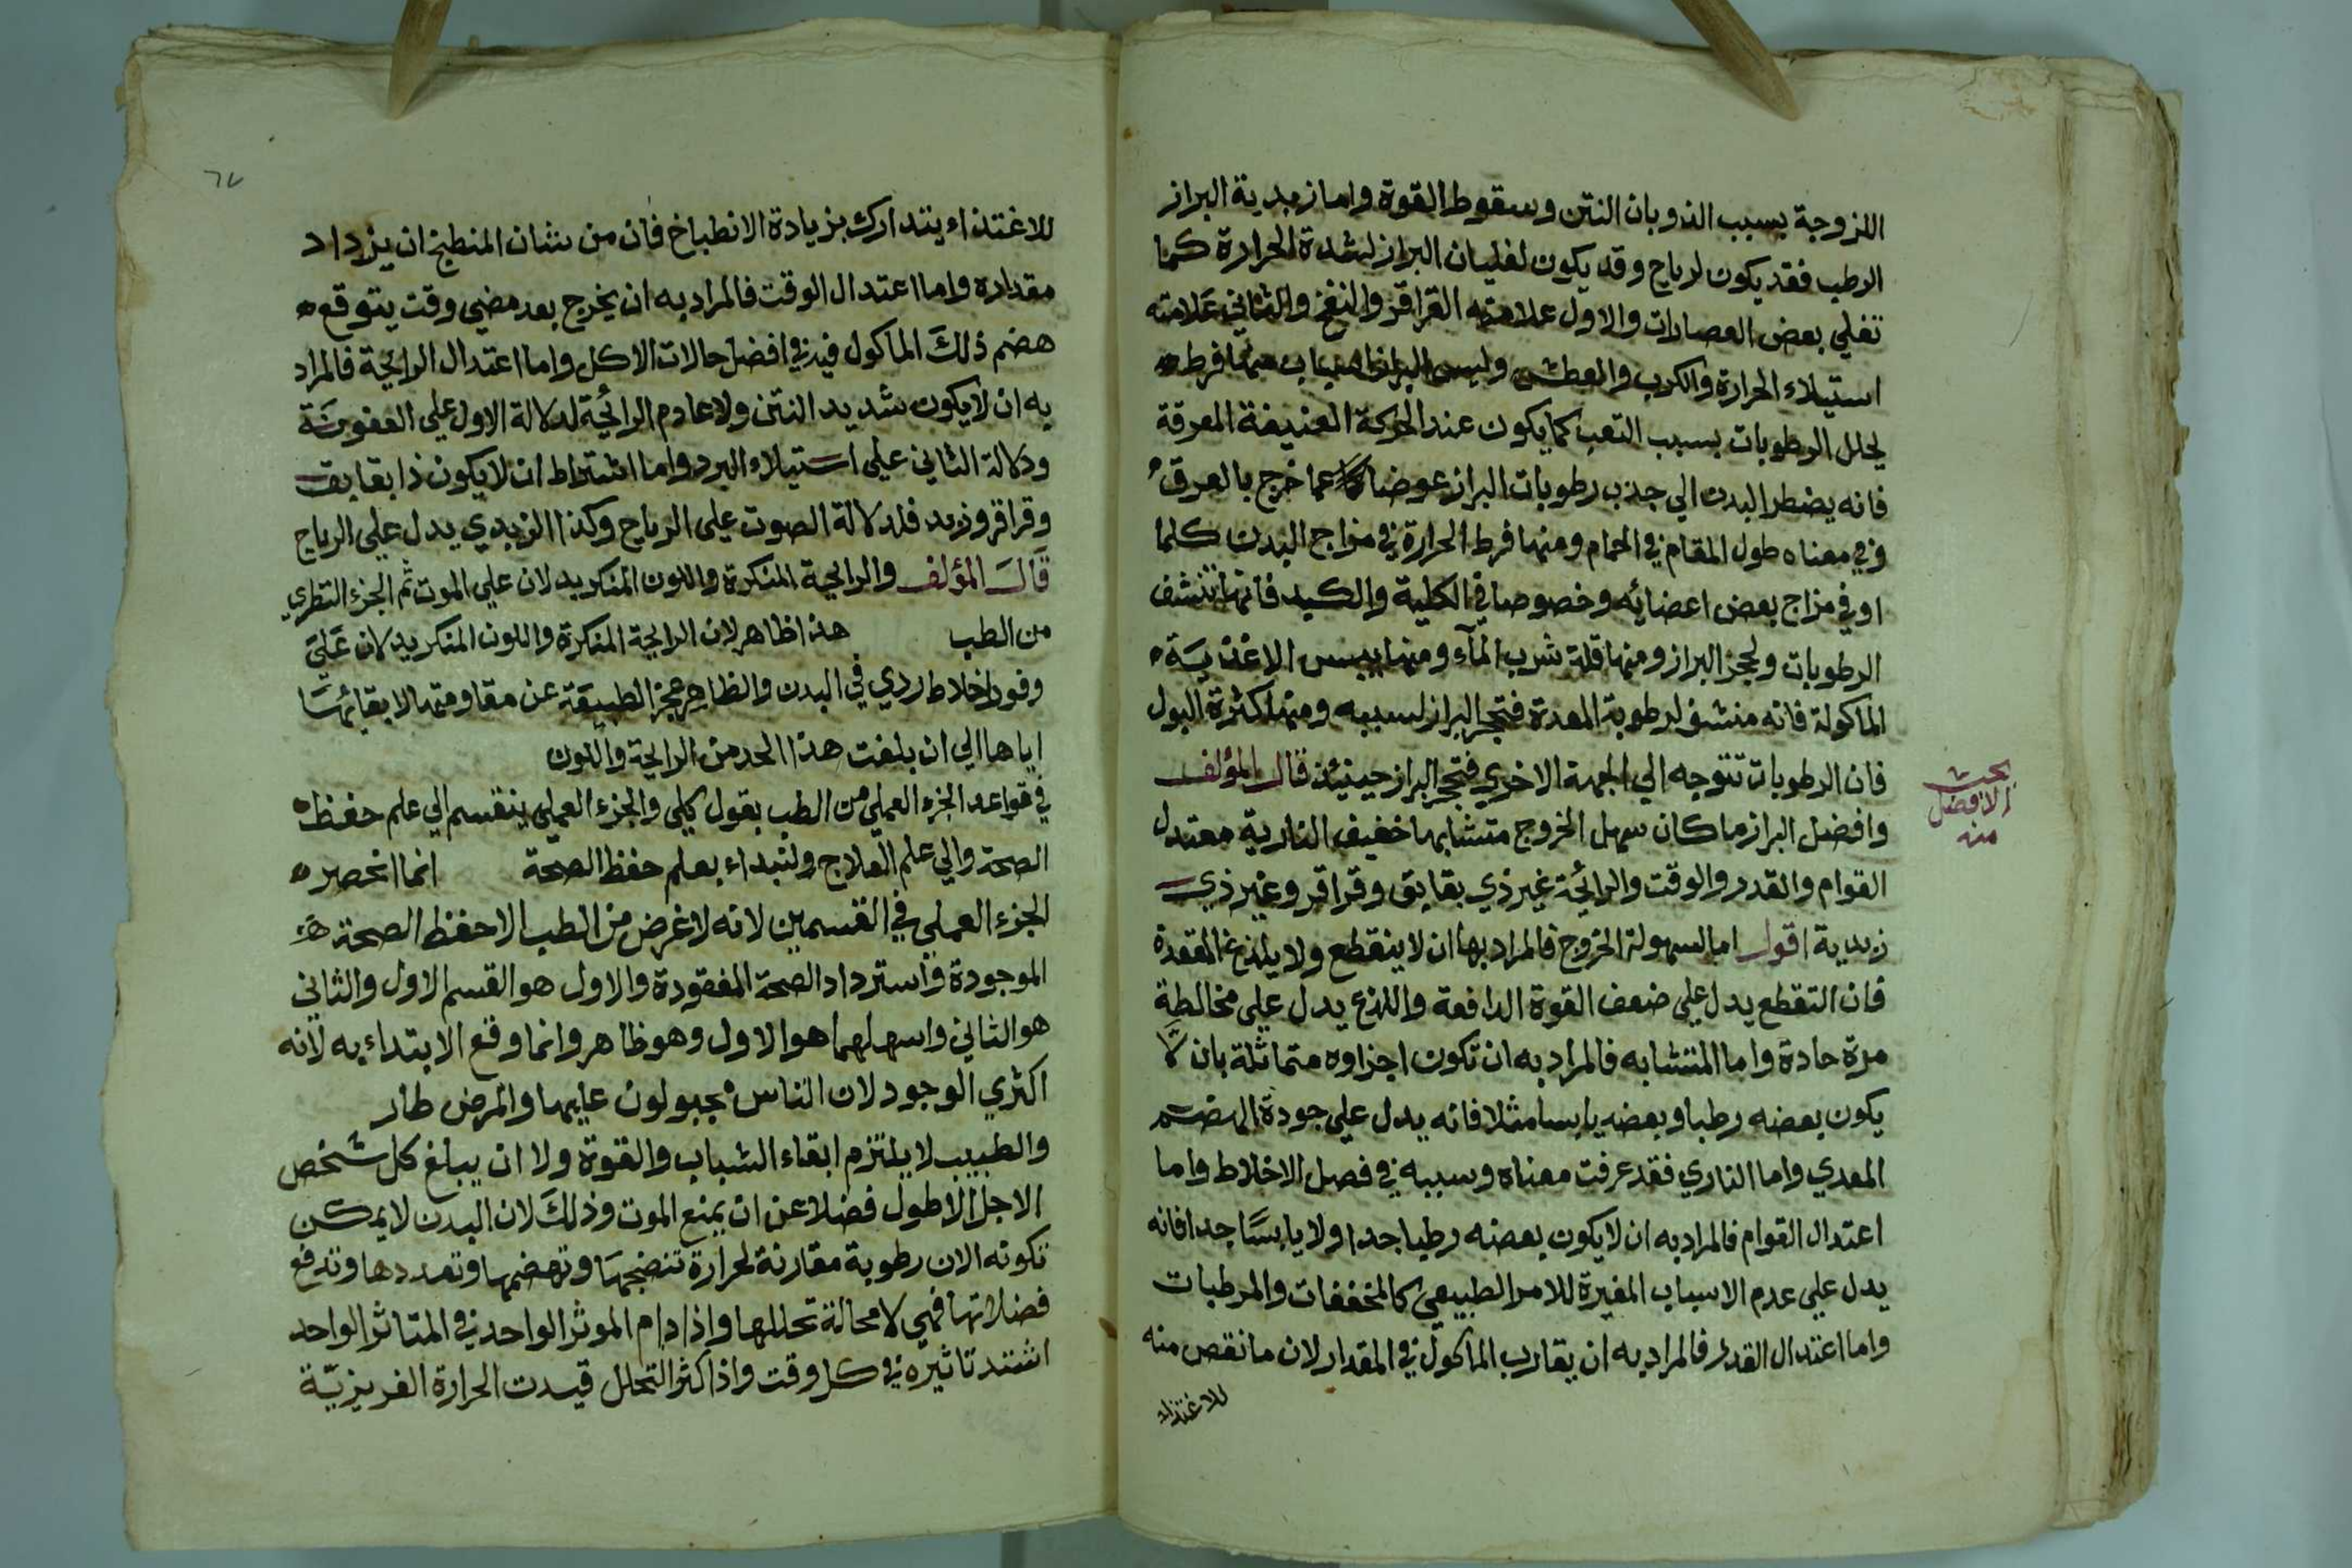 اللزوجة بسبب الذوبان النتن وسقوط القوة واما زبدية البراز
الرطب فقد يكون لرياح وقد يكون لغليان البراز لشدة الحرارة كما
تغلي بعض العصارات والاول علامته القراقر والنفخ والثاني علامته
استيلاء الحرارة والكرب والعطش وليبس البراز اسباب منها فرط
يحلل الرطوبات بسبب التعب كما يكون عند الحركة العنيفة المعرقة
فانه يضطر البدن الي جذب رطوبات البراز عوضا عما خرج بالعرق
وفي معناه طول المقام في الحمام ومنها فرط الحرارة في مزاج البدن كلما
او في مزاج بعض اعضائه وخصوصا في الكلية والكبد فانها تنشف
الرطوبات ولحجز البراز ومنها قلة شرب المآء ومنها يبس الاغذية
الماكولة فانه منشف لرطوبة المعدة فتجر البراز لسببه ومنها كثرة البول
فان الرطوبات تتوجه الي الجهة الاخري فتجر البراز حينئذ قال المؤلف
بحث
الافضل
منه
وافضل البراز ما كان سهل الخروج متشابها خفيف النارية معتدل
القوام والقدر والوقت والرائحة غير ذي بقابق وقراقر وغير ذي
زبدية اقول اما السهولة الخروج فالمراد بها ان لا ينقطع ولا يلذع المقعدة
فان التقطع يدل علي ضعف القوة الدافعة واللذع يدل علي مخالطة
مرة حادة واما المتشابه فالمراد به ان تكون اجزاوه متماثلة بان لا
يكون بعضه رطبا وبعضه يابسا مثلا فانه يدل علي جودة الهضم
المعدي واما الناري فقد عرفت معناه وسببه في فصل الاخلاط واما
اعتدال القوام فالمراد به ان لا يكون بعضه رطبا جدا ولا يابسًا جدا فانه
يدل علي عدم الاسباب المغيرة للامر الطبيعي كالمخففات والمرطبات
واما اعتدال القدر فالمراد به ان يقارب الماكول في المقدار لان ما نقص منه
للاغتذاء
٦٧
للاغتذاء يتدارك بزيادة الانطباخ فان من شان المنطبخ ان يزداد
مقداره واما اعتدال الوقت فالمراد به ان يخرج بعد مضي وقت يتوقع
هضم ذلك الماكول فيه في افضل حالات الاكل واما اعتدال الرايحة فالمراد
به ان لا يكون شديد النتن ولا عادم الرائحة لدلالة الاول علي العفونة
ودلالة الثاني علي استيلاء البرد واما اشتراط ان لا يكون ذا بقابق
وقراقر وزبد فلدلالة الصوت علي الرياح وكذا الزبدي يدل علي الرياح
قال المؤلف والرايحة المنكرة واللون المنكر يدلان علي الموت ثم الجزء النظري
من الطب هذا ظاهر لان الرايحة المنكرة واللون المنكر يدلان علي
وفور اخلاط ردي في البدن والظاهر عجز الطبيعة عن مقاومتها لابقائها
اياها الي ان بلغت هذا الحد من الرايحة واللون
في قواعد الجزء العملي من الطب بقول كلي والجزء العملي ينقسم الي علم حفظ
الصحة والي علم العلاج ولنبداء بعلم حفظ الصحة انما انحصر
الجزء العملي في القسمين لانه لا غرض من الطب الا حفظ الصحة
الموجودة واسترداد الصحة المفقودة والاول هو القسم الاول والثاني
هو الثاني واسهلهما هو الاول وهو ظاهر وانما وقع الابتداء به لانه
اكثري الوجود لان الناس مجبولون عليها والمرض طار
والطبيب لا يلتزم ابقاء الشباب والقوة ولا ان يبلغ كل شخص
الاجل الاطول فضلا عن ان يمنع الموت وذلك لان البدن لا يمكن
تكونه الا من رطوبة مقارنة لحرارة تنضجها وتهضمها وتمددها وتدفع
فضلاتها فهي لا محالة تحللها واذا دام الموثر الواحد في المتاثر الواحد
اشتد تاثيره في كل وقت واذا كثر التحلل قيدت الحرارة الغريزيّة